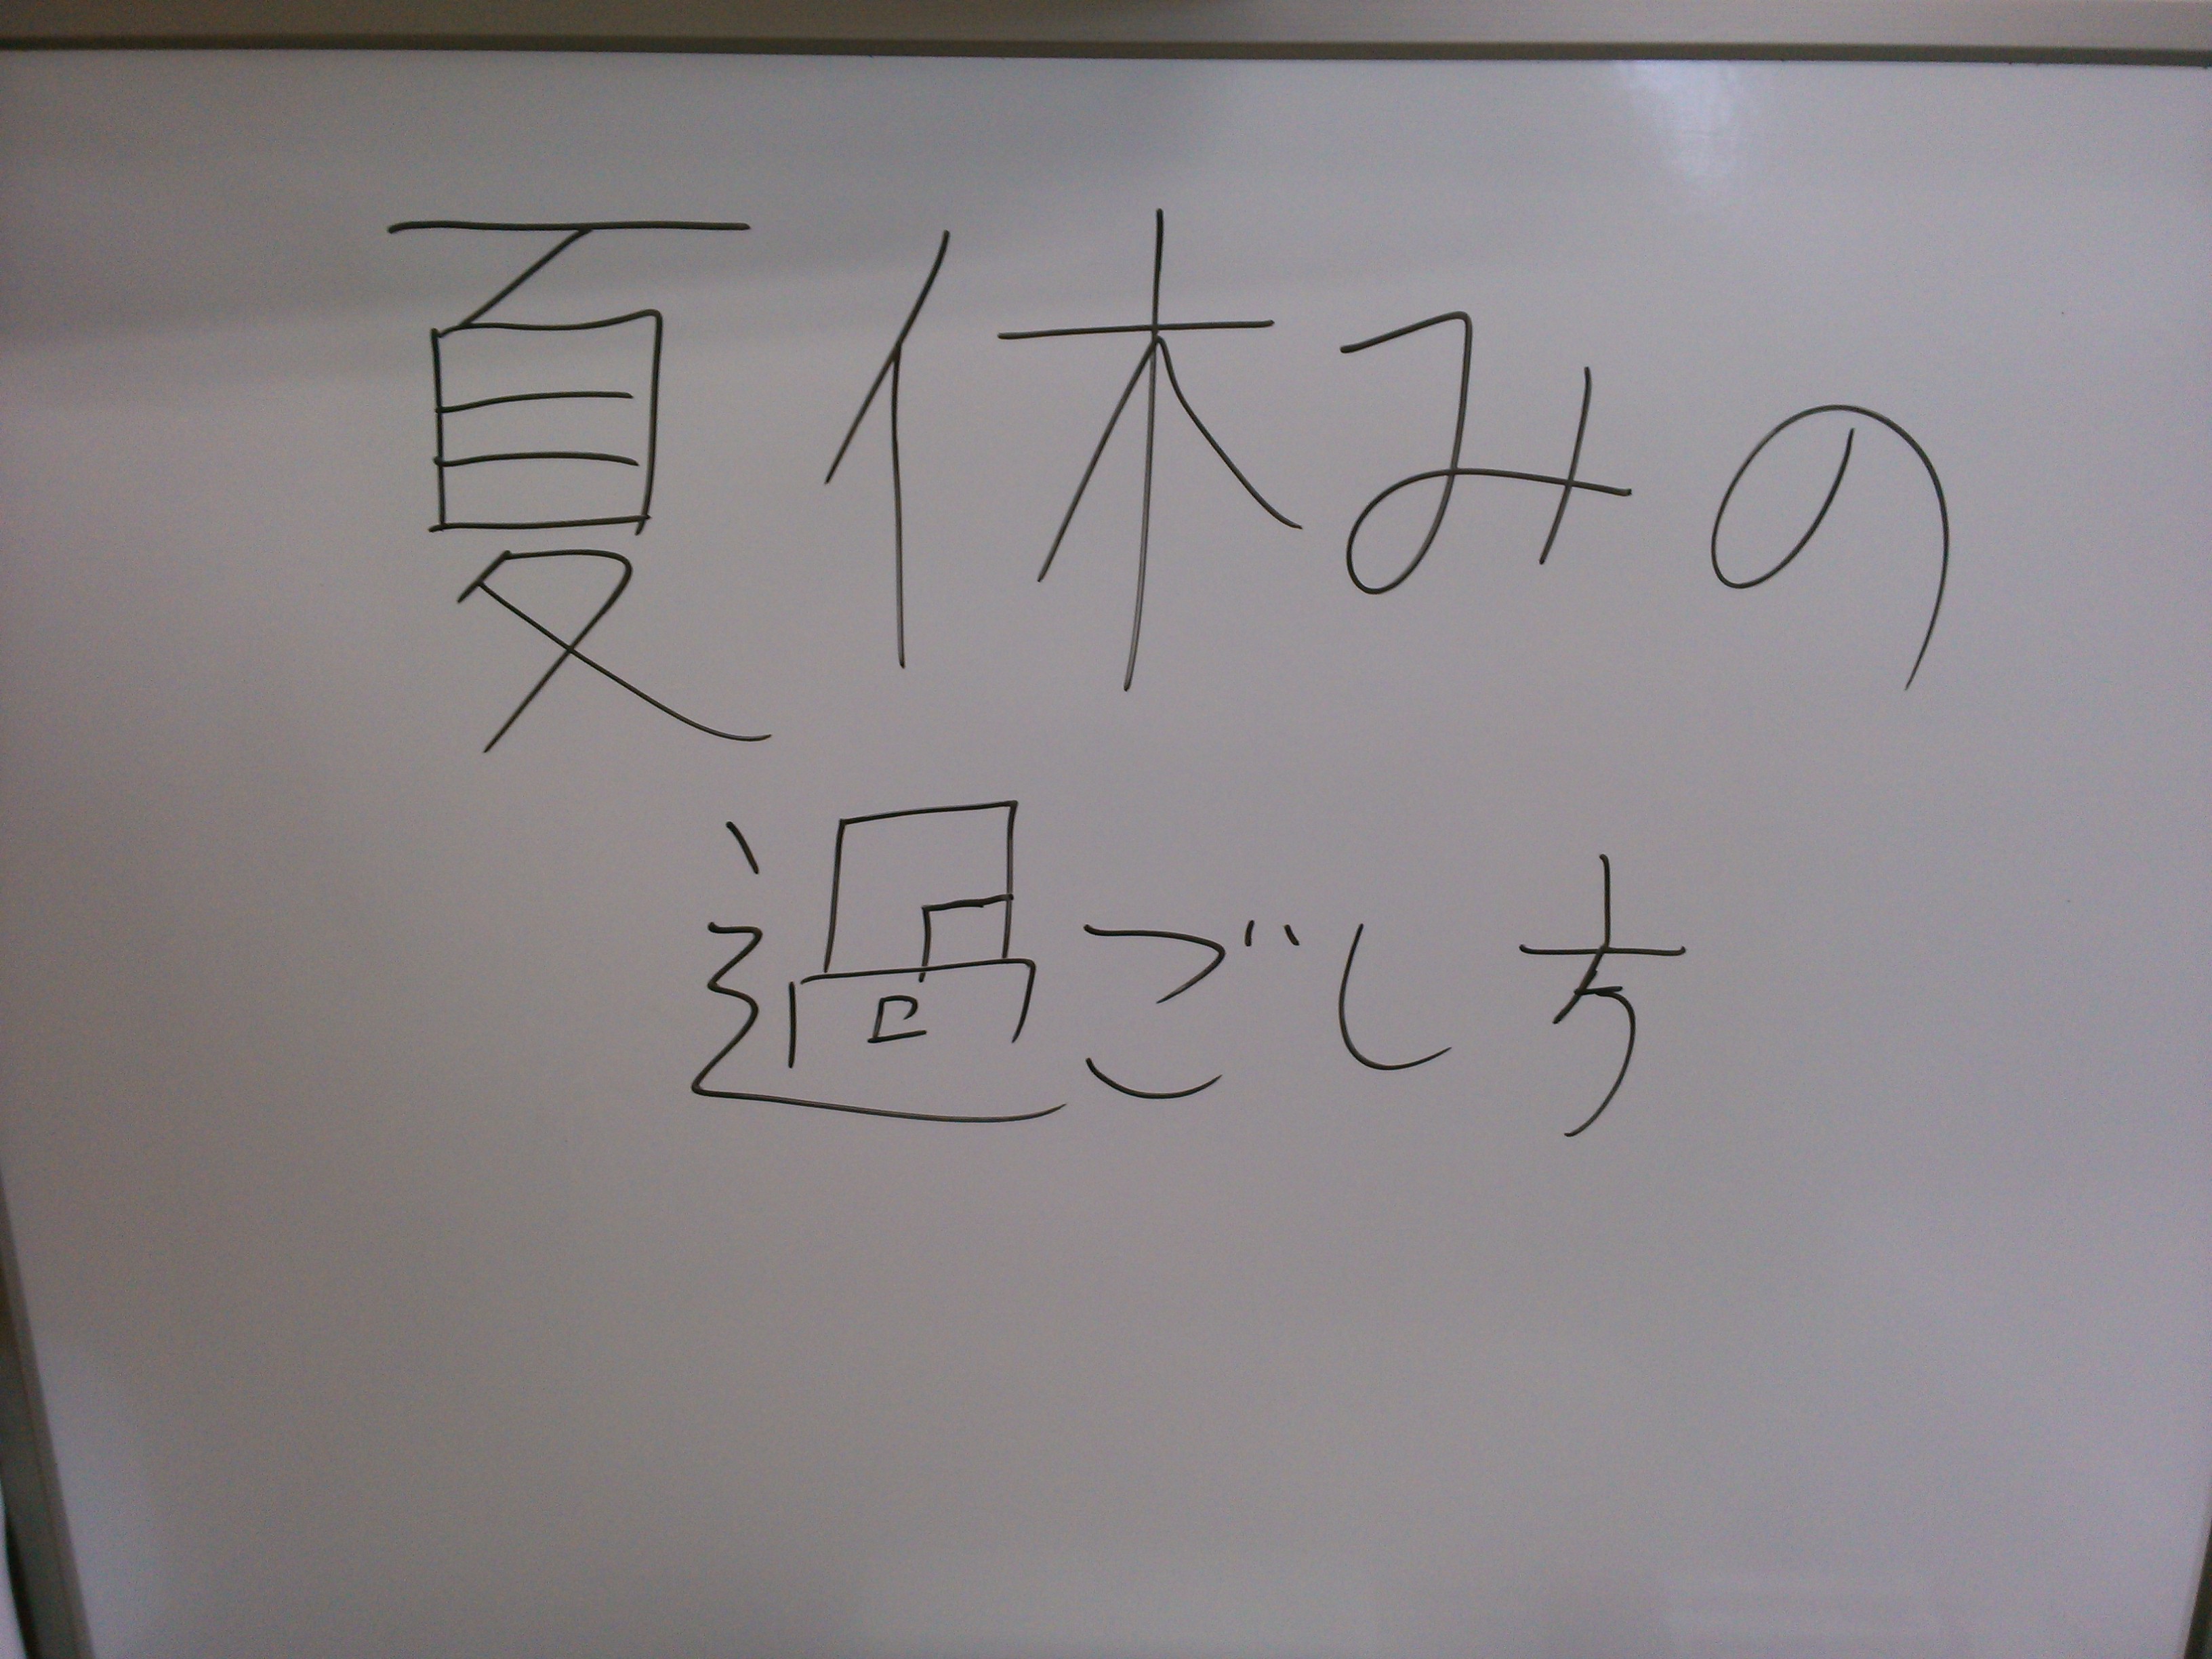 夏休みの
過ごし方